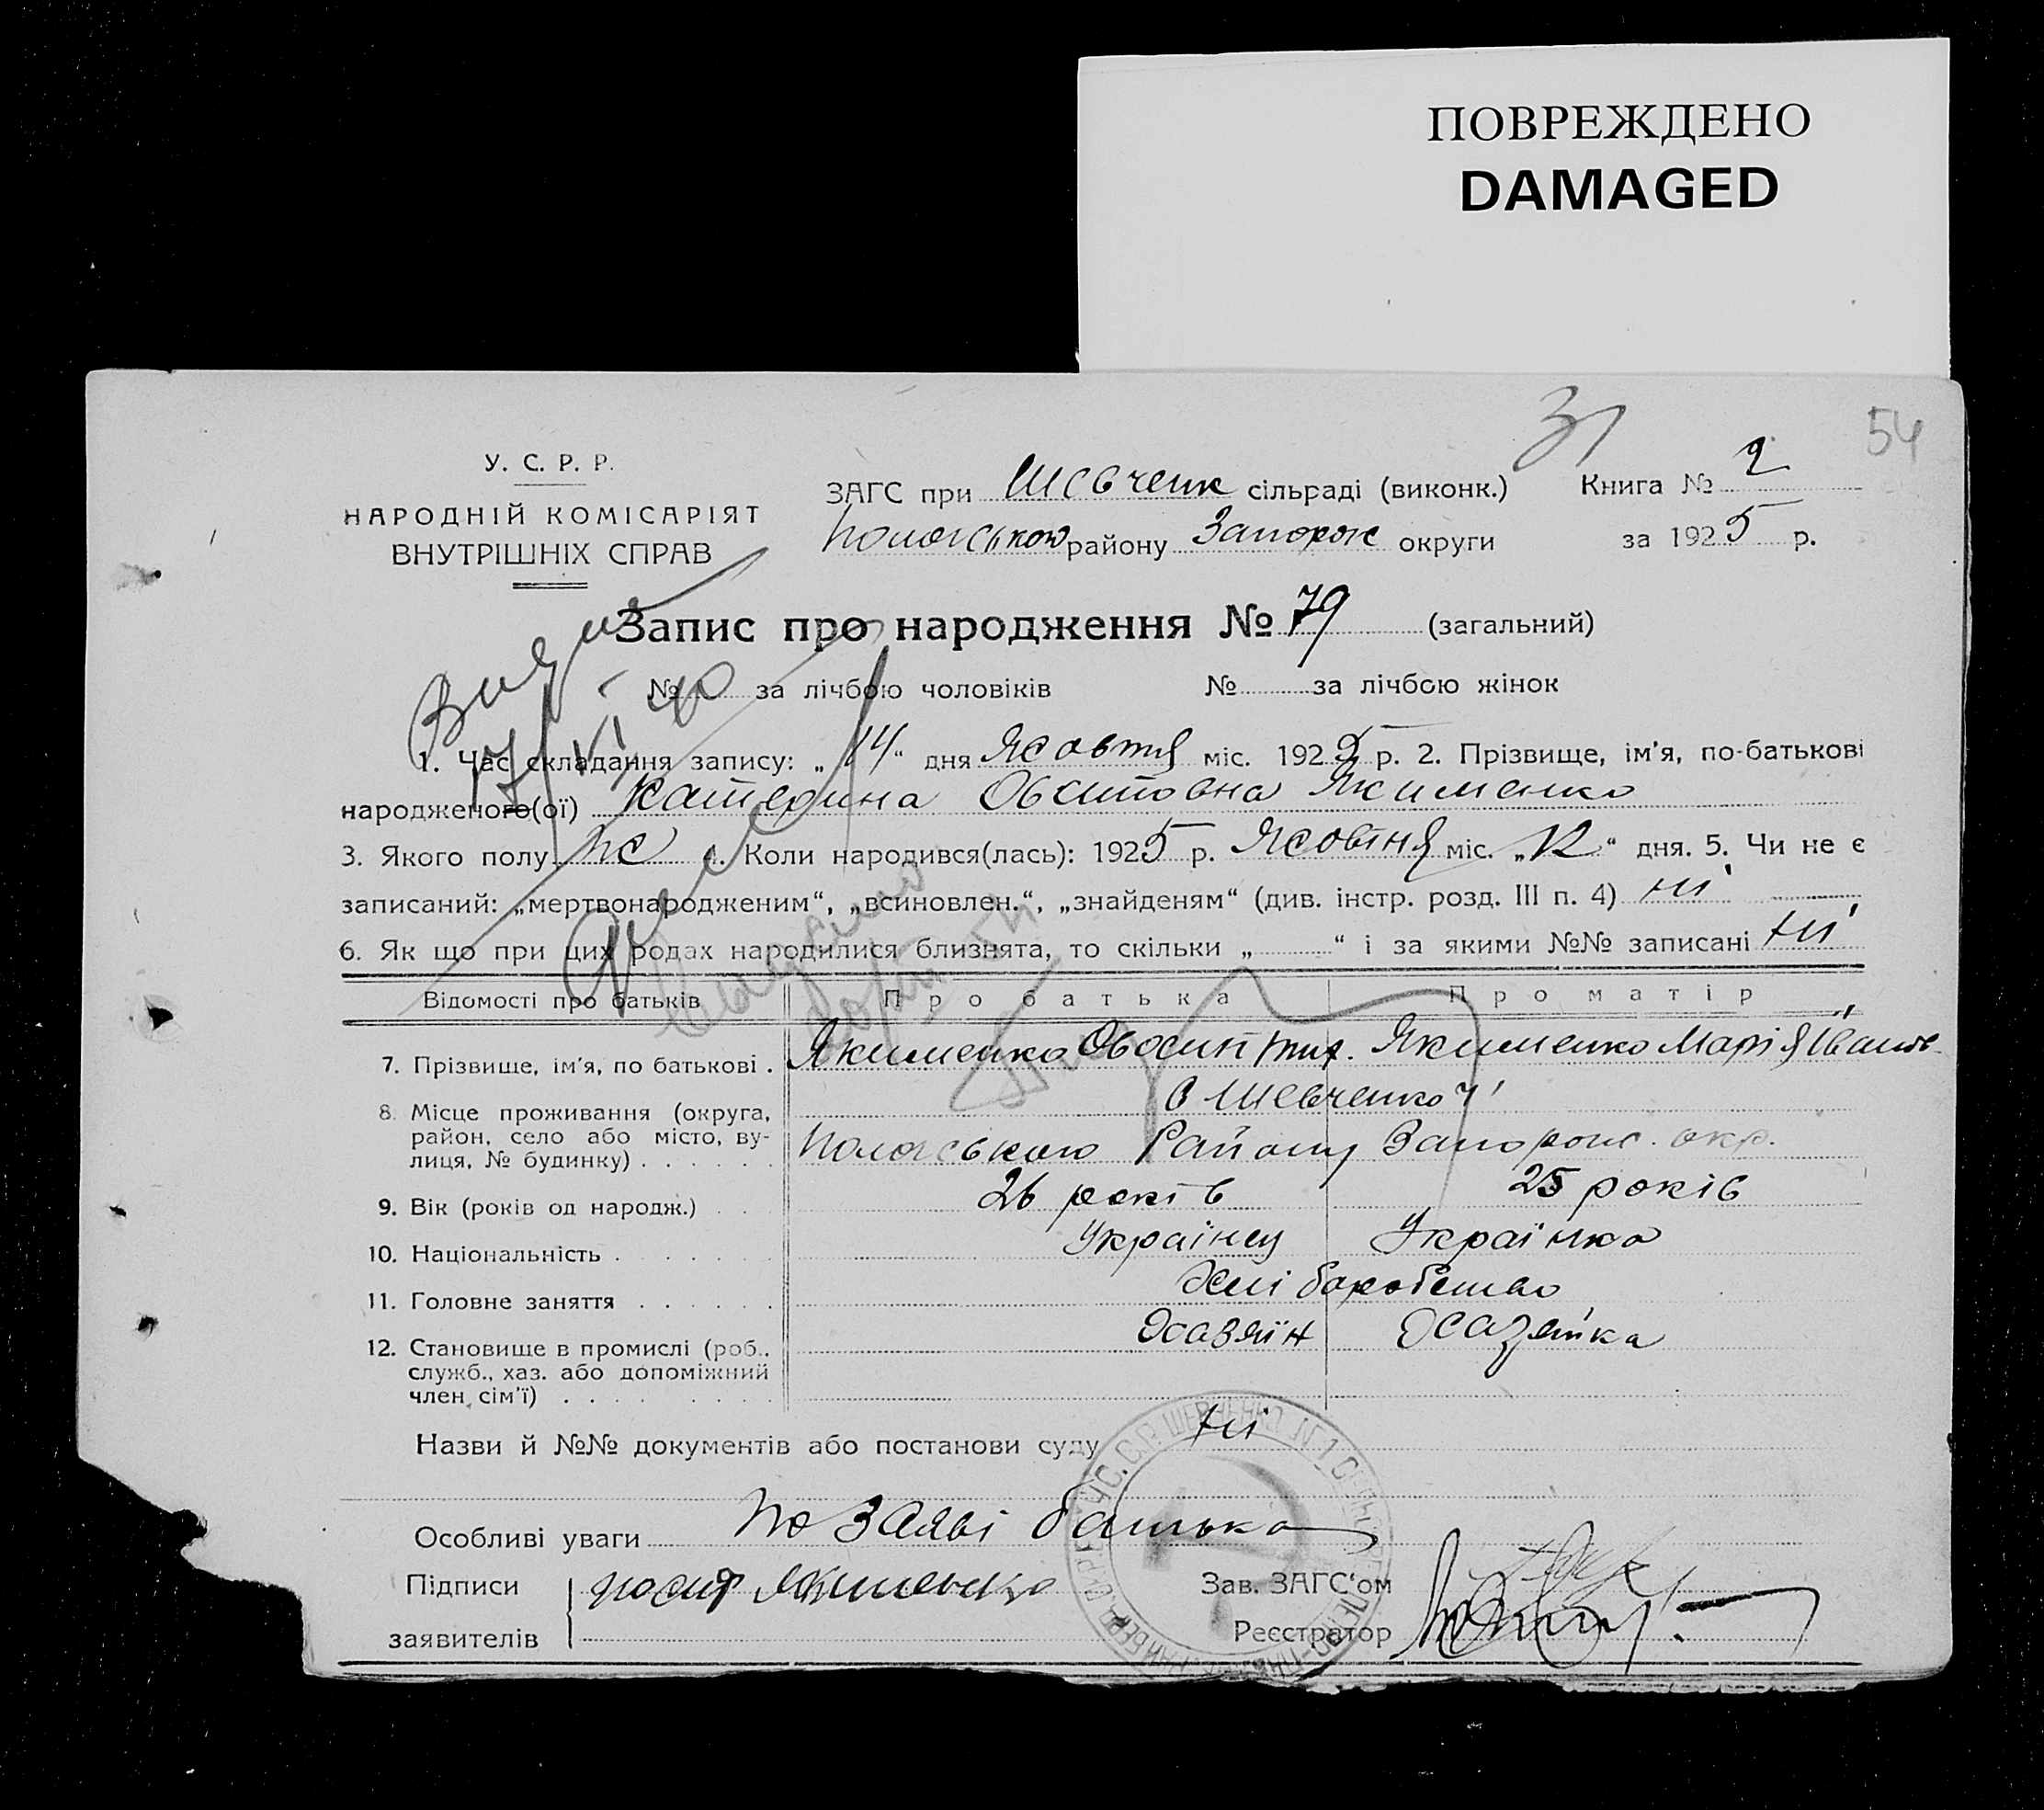 ПОВРЕЖДЕНО
DAMAGED
31 54
У. С. Р. Р.
НАРОДНІЙ КОМІСАРІЯТ
ВНУТРІШНІХ СПРАВ
ЗАГС при Шевченк сільраді (виконк.) Книга № 2
Пологською району Запорож округи за 1925 р.
Запис про народження № 79 (загальний)
№ за лічбою чоловіків № за лічбою жінок
1. Час складання запису: „14“ дня Жовтня міс. 1925 р. 2. Прізвище, ім'я, по-батькові
народженого(ої) Катерина Якименко
3. Якого полу ж 4. Коли народився(лась): 1925 р. Жовтня міс. „12“ дня. 5. Чи не є
записаний: „мертвонародженим“, „всиновлен.“, „знайденям“ (див. інстр. розд. III п. 4) ні
6. Як що при цих родах народилися близнята, то скільки „ “ і за якими №№ записані ні
Відомості про батьків Про батька Про матір
7. Прізвище, ім'я, по батькові . Якименко Якименко Марія Іванов
8. Місце проживання (округа, с Шевченко 1
район, село або місто, ву-
лиця, № будинку) . . . . . . Пологською Району Запорож. окр.
9. Вік (років од народж.) . . 26 років 25 років
10. Національність . . . . Українец Українка
11. Головне заняття . . . . . . Хліборобство
12. Становище в промислі (роб., Хазяїн Хазяйка
служб., хаз. або допоміжний
член сім'ї) . . . . . . . .
Назви й №№ документів або постанови суду ні
Особливі уваги по заяві батька
Підписи Якименко Зав. ЗАГС'ом
заявителів Реєстратор